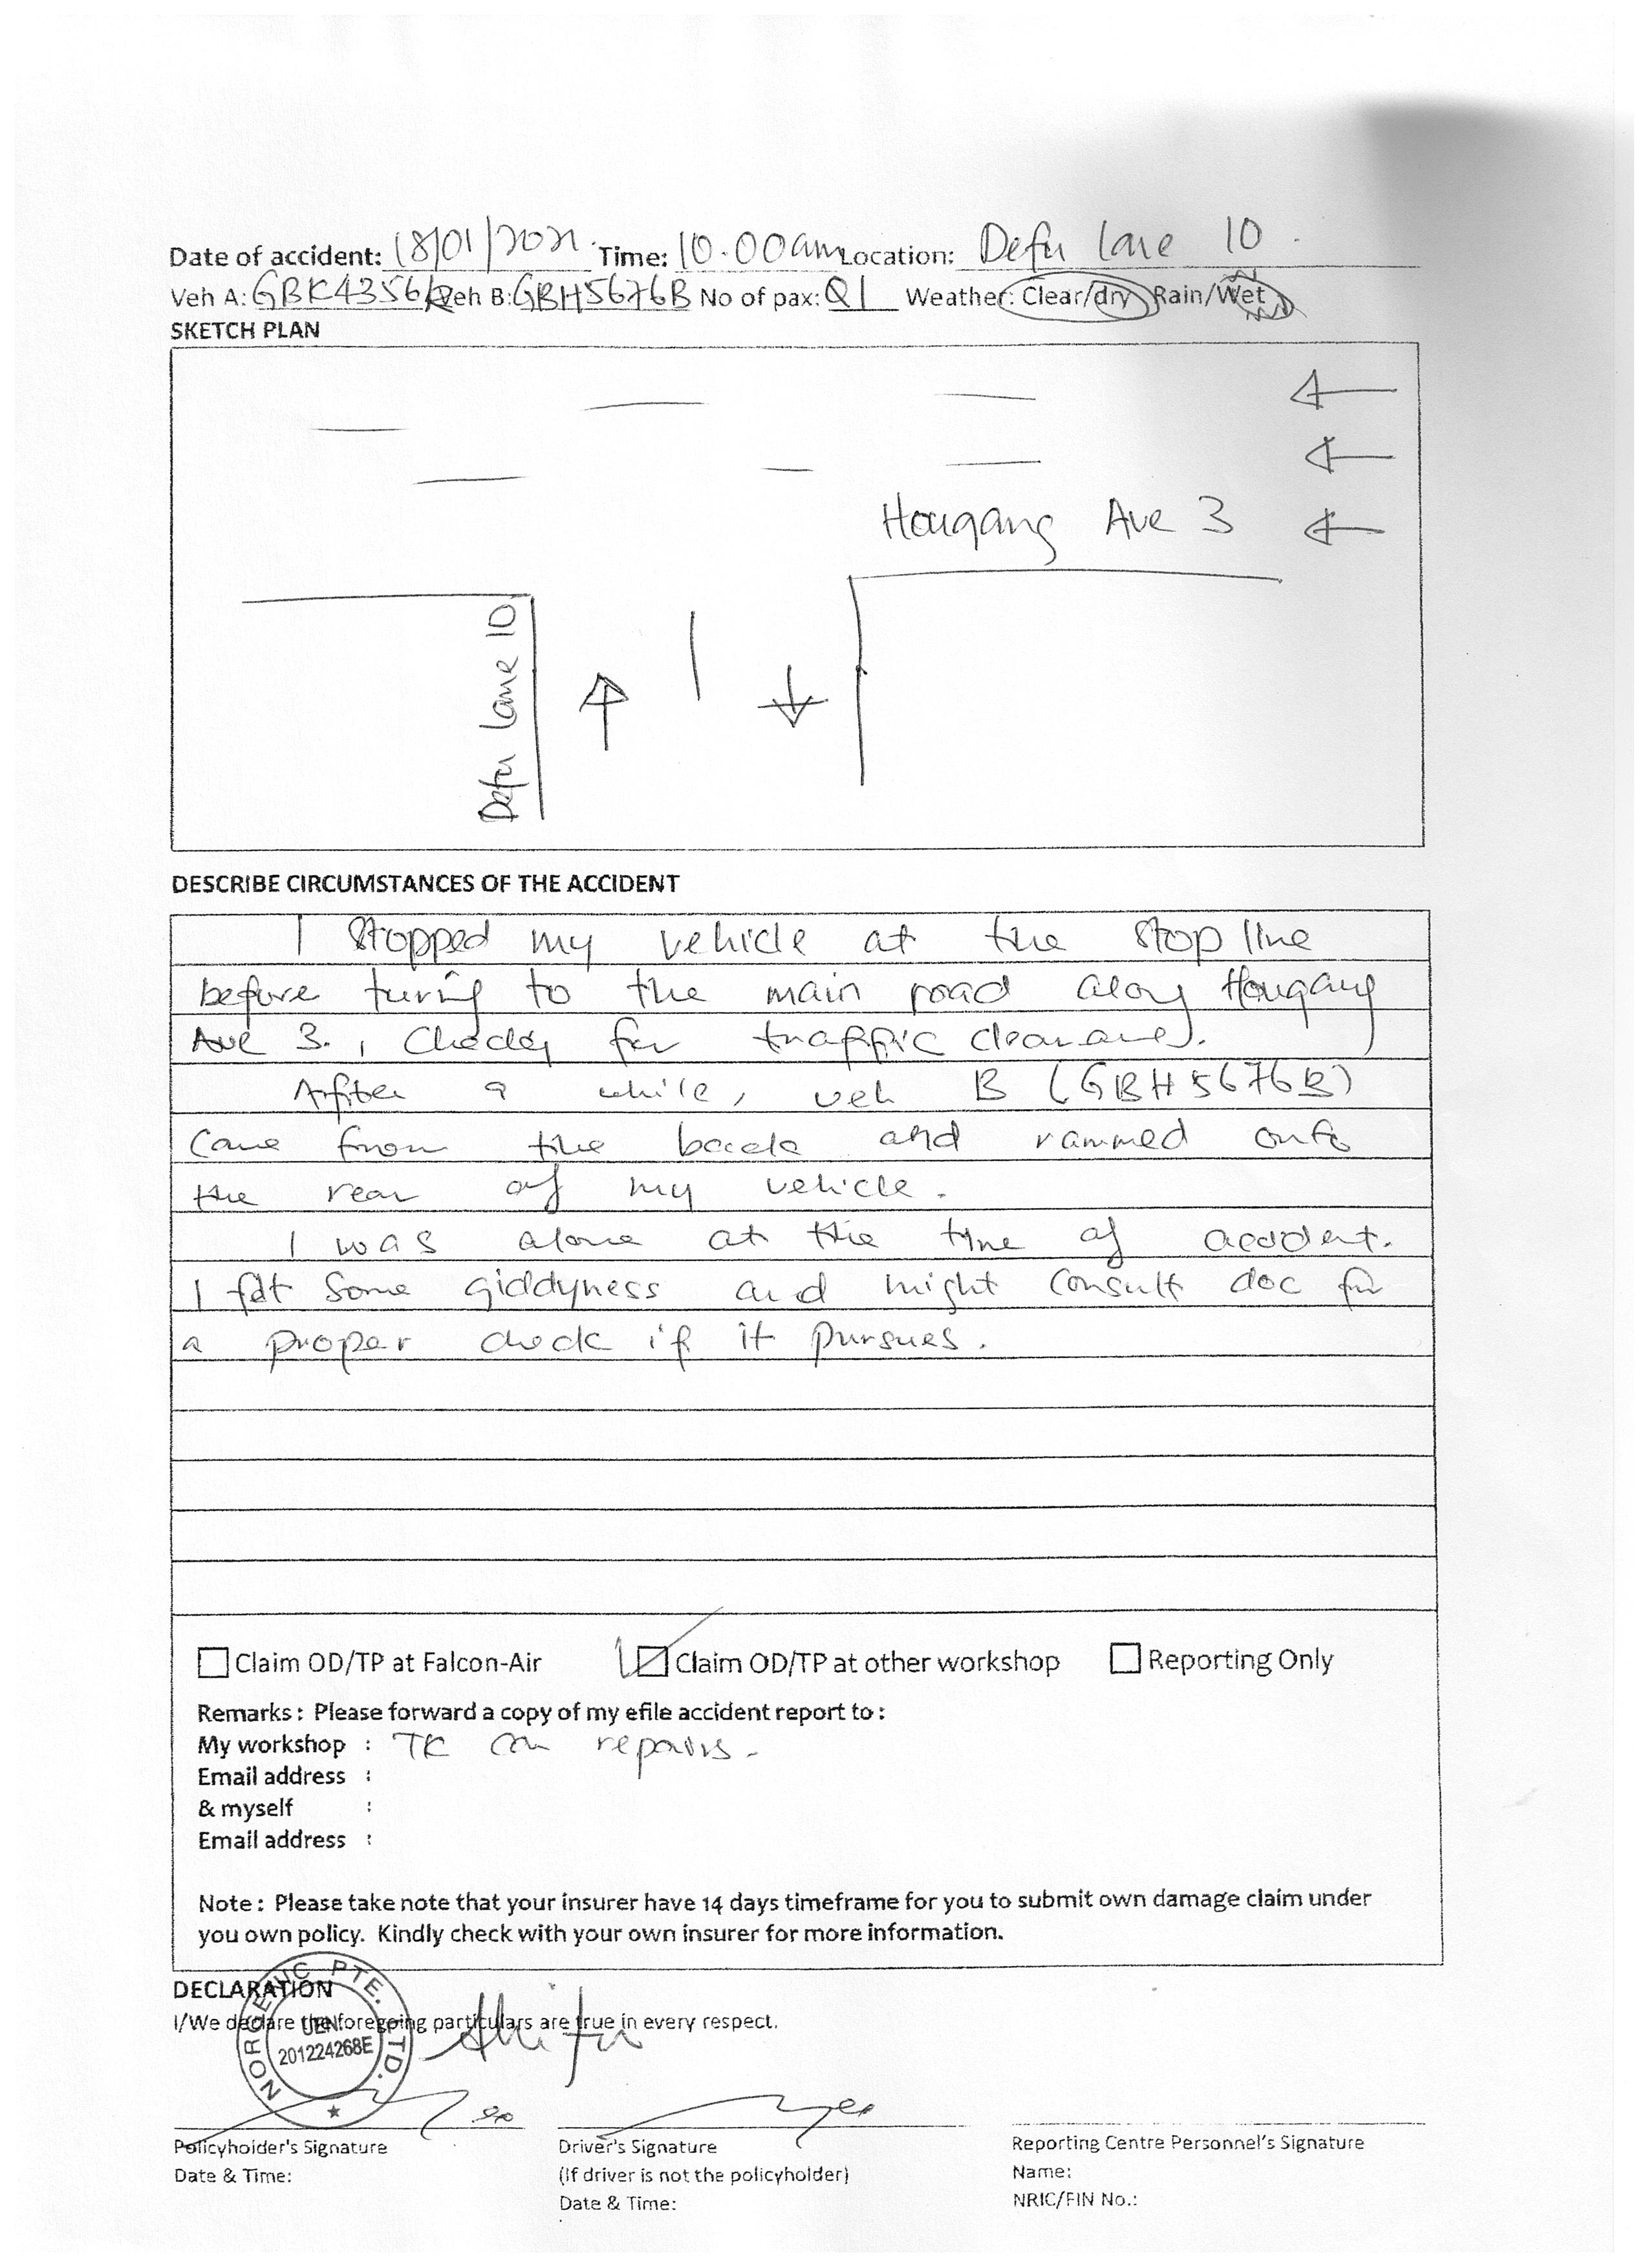 Date of accident: 18/01/2021. Time: 10.00am Location: Defu lane 10.
Veh A: GBK4356 Veh B: GBH5676B No of pax: 01 Weather: Clear/dry Rain/Wet
SKETCH PLAN
Hougang Ave 3
Defu Lane 10
DESCRIBE CIRCUMSTANCES OF THE ACCIDENT
I stopped my vehicle at the stop line
before turing to the main road along Hougang
Ave 3., for traffic clearance).
After a while, veh B (GBH5676B)
came from the back and rammed onto
the rear of my vehicle.
I was alone at the time of accident.
I felt some giddyness and might consult doc for
a proper check if it pursues.
Claim OD/TP at Falcon-Air Claim OD/TP at other workshop Reporting Only
Remarks : Please forward a copy of my efile accident report to :
My workshop : TK car repairs.
Email address :
& myself :
Email address :
Note : Please take note that your insurer have 14 days timeframe for you to submit own damage claim under
you own policy. Kindly check with your own insurer for more information.
DECLARATION
I/We declare the foregoing particulars are true in every respect.
NORGEVIC PTE. LTD.
UEN:
201224268E
Policyholder's Signature Driver's Signature Reporting Centre Personnel's Signature
Date & Time: (If driver is not the policyholder) Name:
Date & Time: NRIC/FIN No.: